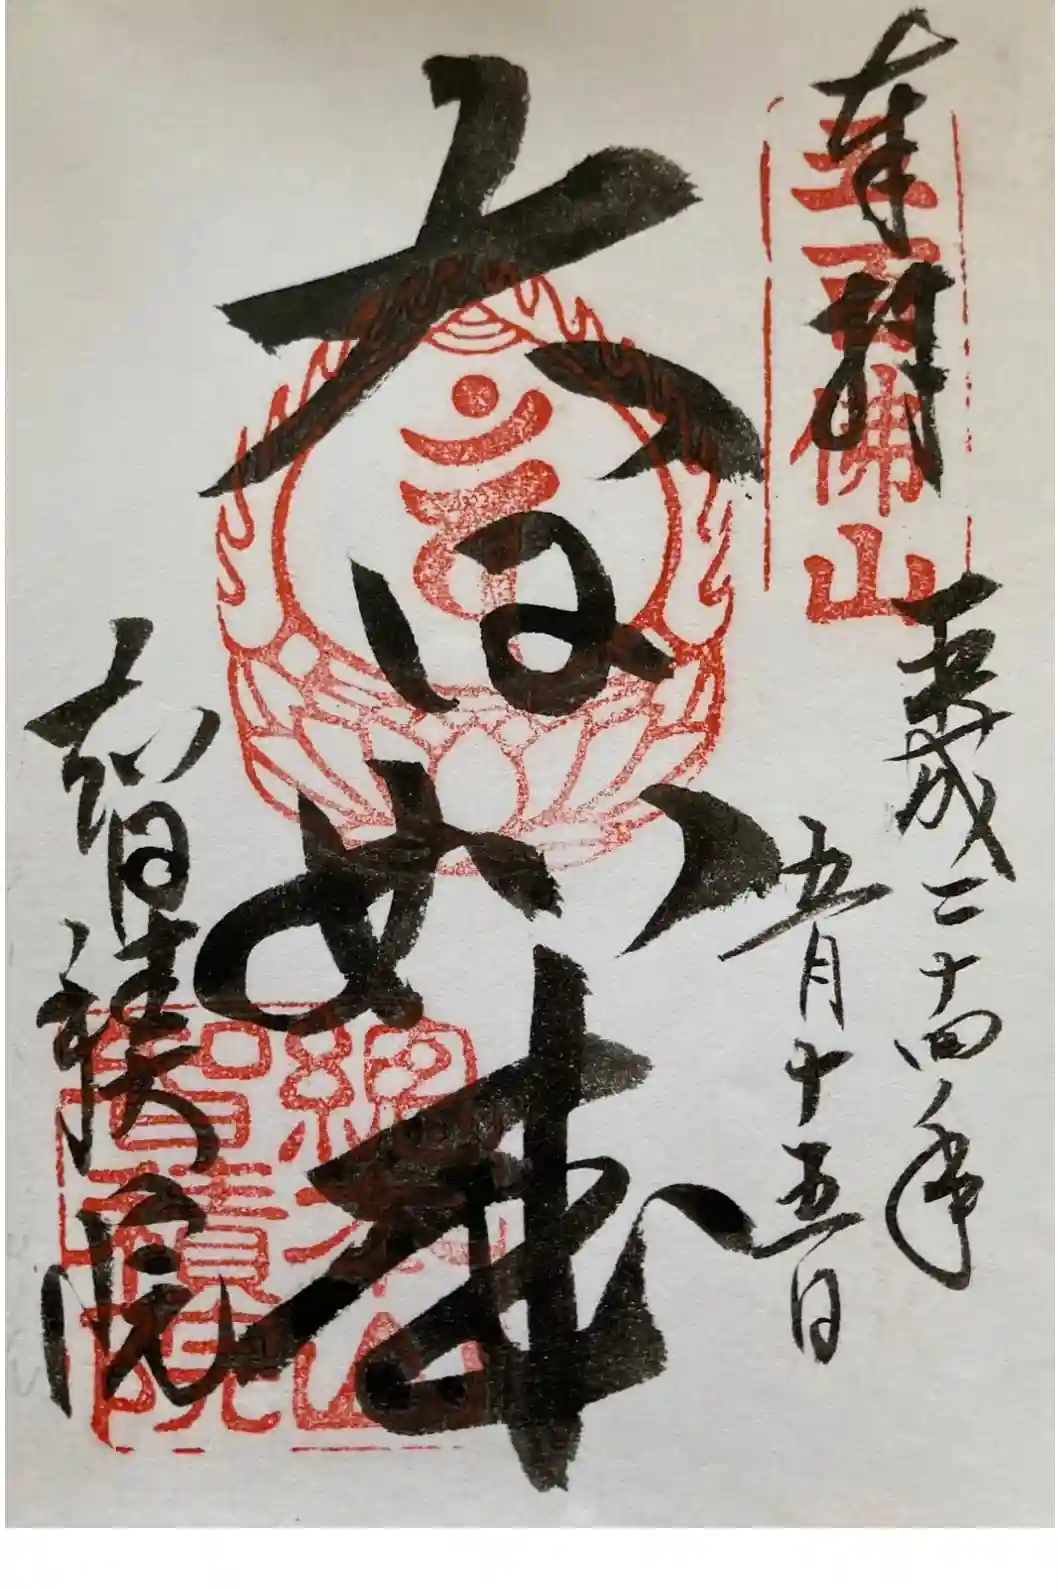 奉拝
五百佛山
平成二十四年
五月十五日
大日如来
智積院
總本山
智積院